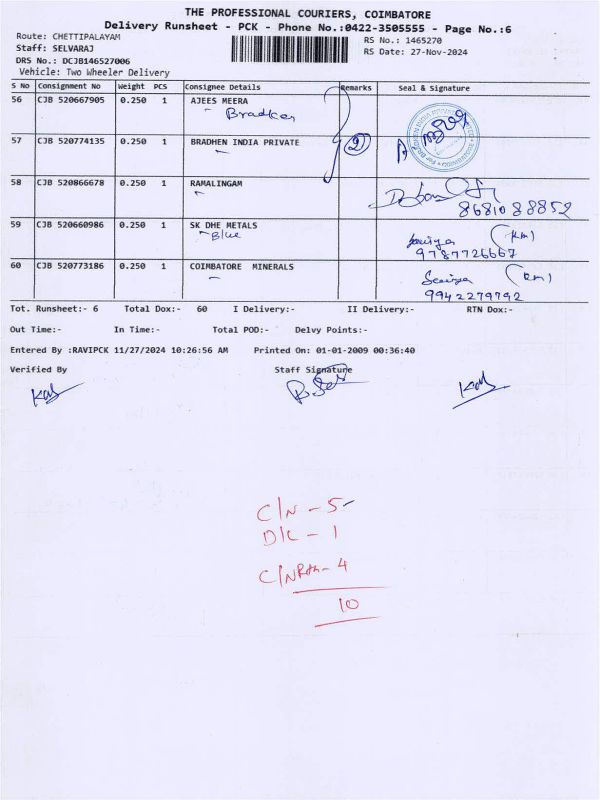 THE PROFESSIONAL COURIERS, COIMBATORE
Delivery Runsheet - PCK - Phone No.:0422-3505555 - Page No.:6
Route: CHETTIPALAYAM
RS No.: 1465270
Staff: SELVARAJ
RS Date: 27-Nov-2024
DRS No.: DCJB146527006
Vehicle: Two Wheeler Delivery
S No Consignment No Weight PCS Consignee Details Remarks Seal & Signature
56 CJB 520667905 0.250 1 AJEES MEERA
Bradken
57 CJB 520774135 0.250 1 BRADHEN INDIA PRIVATE 2
58 CJB 520866678 0.250 1 RAMALINGAM
8681088852
59 CJB 520660986 0.250 1 SK DHE METALS
Blue
(KM)
9787726667
60 CJB 520773186 0.250 1 COIMBATORE MINERALS
(KM)
9942279792
Tot. Runsheet:- 6 Total Dox:- 60 I Delivery:- II Delivery:- RTN Dox:-
Out Time:- In Time:- Total POD:- Delvy Points:-
Entered By :RAVIPCK 11/27/2024 10:26:56 AM Printed On: 01-01-2009 00:36:40
Verified By Staff Signature
C/N - 5
D/L - 1
C/N Rtn - 4
10